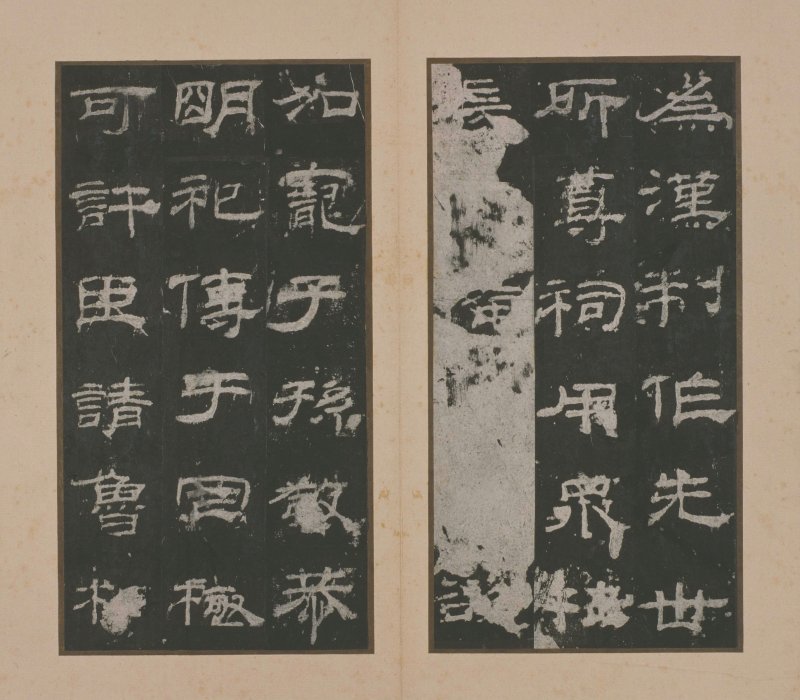 為漢制作先世
所尊祠用眾牲
長備欲
加寵子孫敬恭
明祀傳于罔極
可許臣請魯相